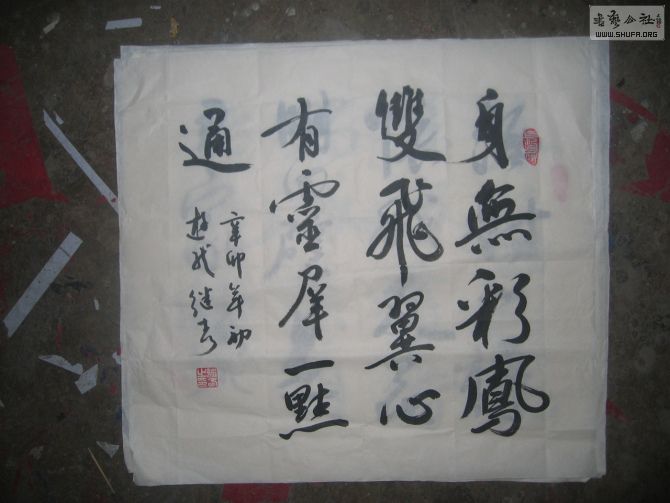 書藝公社
WWW.SHUFA.ORG
身無彩鳳
雙飛翼心
有靈犀一點
通
辛卯年初